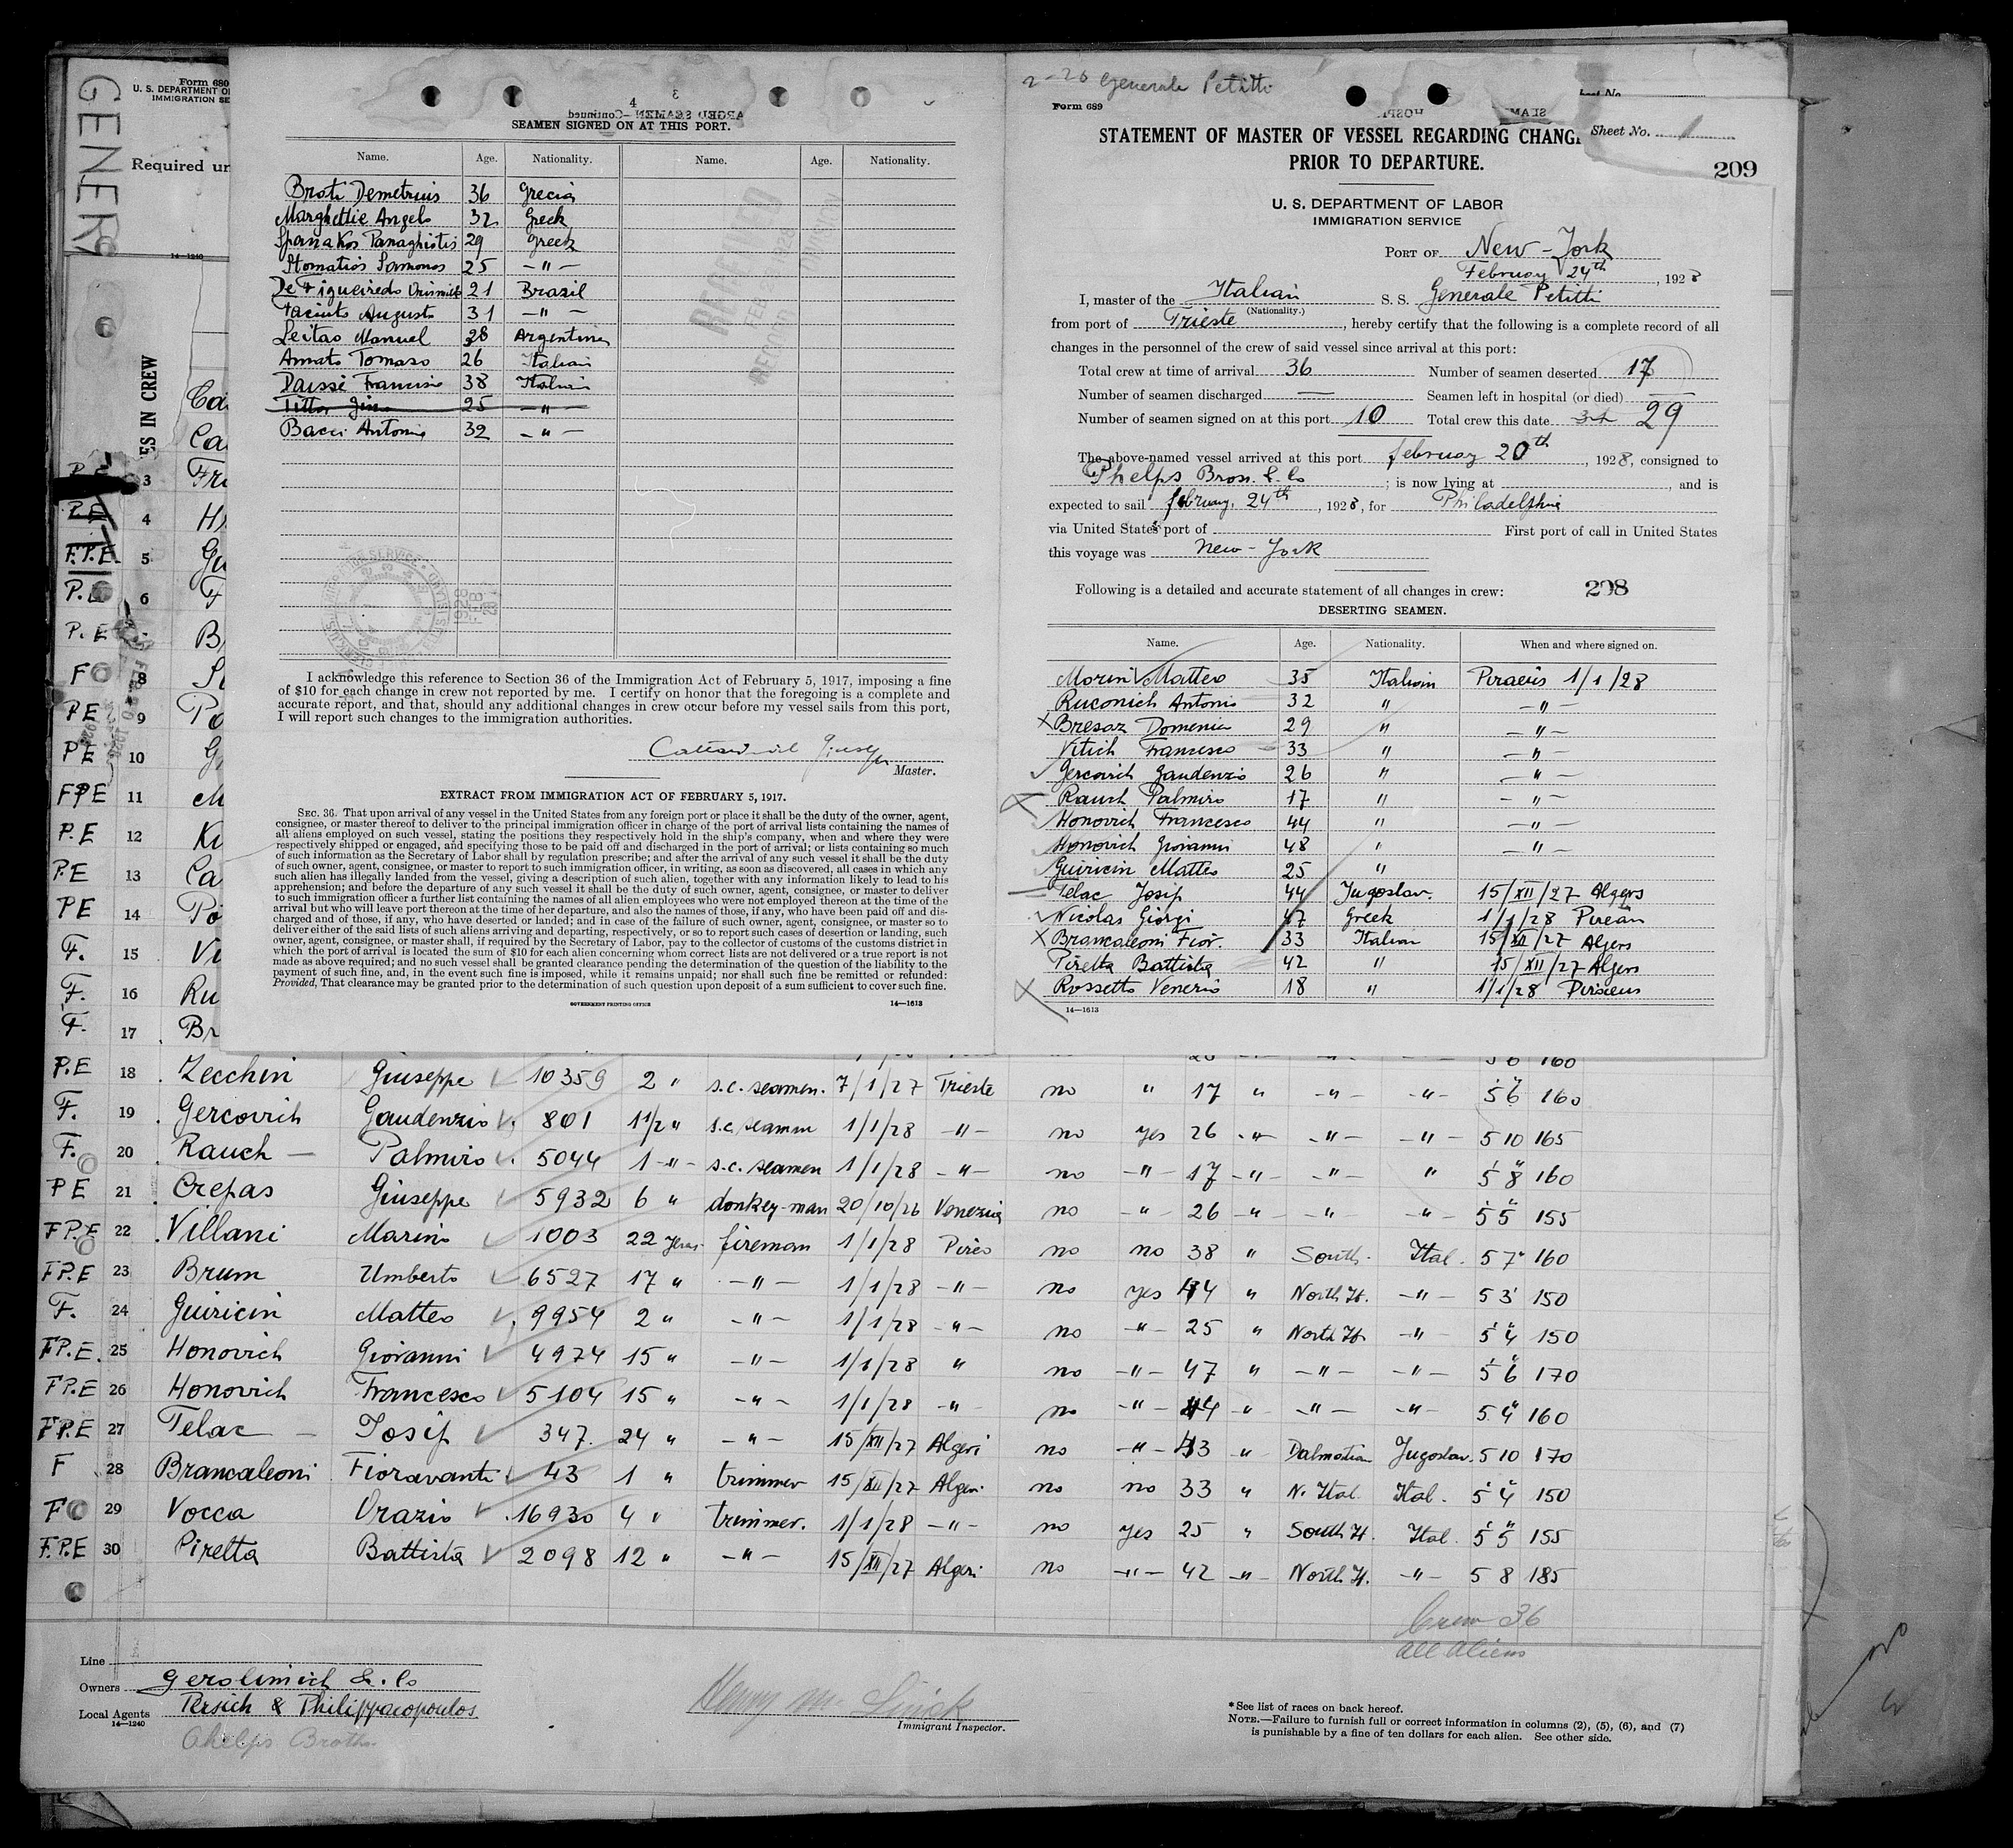 GENER
Form 680
U. S. DEPARTMENT O
IMMIGRATION SE
Required un
14—1240
ES IN CREW
3 4
SEAMEN SIGNED ON AT THIS PORT.
Name. Age. Nationality. Name. Age. Nationality.
Broti Demetrius 36 Grecia
Marghettie Angelo 32 Greek
Spanakos Panaghiotis 29 Greek
Stomatios Samonos 25 — " —
De Figueiredo 21 Brazil
Jacinto Augusto 31 — " —
Leitao Manuel 28 Argentina
Amato Tomaso 26 Italian
Daissè Francesco 38 Italian
Tittor Gino 25 — " —
Bacci Antonio 32 — " —
RECEIVED
I acknowledge this reference to Section 36 of the Immigration Act of February 5, 1917, imposing a fine
of $10 for each change in crew not reported by me. I certify on honor that the foregoing is a complete and
accurate report, and that, should any additional changes in crew occur before my vessel sails from this port,
I will report such changes to the immigration authorities.
Master.
EXTRACT FROM IMMIGRATION ACT OF FEBRUARY 5, 1917.
SEC. 36. That upon arrival of any vessel in the United States from any foreign port or place it shall be the duty of the owner, agent,
consignee, or master thereof to deliver to the principal immigration officer in charge of the port of arrival lists containing the names of
all aliens employed on such vessel, stating the positions they respectively hold in the ship's company, when and where they were
respectively shipped or engaged, and specifying those to be paid off and discharged in the port of arrival; or lists containing so much
of such information as the Secretary of Labor shall by regulation prescribe; and after the arrival of any such vessel it shall be the duty
of such owner, agent, consignee, or master to report to such immigration officer, in writing, as soon as discovered, all cases in which any
such alien has illegally landed from the vessel, giving a description of such alien, together with any information likely to lead to his
apprehension; and before the departure of any such vessel it shall be the duty of such owner, agent, consignee, or master to deliver
to such immigration officer a further list containing the names of all alien employees who were not employed thereon at the time of the
arrival but who will leave port thereon at the time of her departure, and also the names of those, if any, who have been paid off and dis-
charged and of those, if any, who have deserted or landed; and in case of the failure of such owner, agent, consignee, or master so to
deliver either of the said lists of such aliens arriving and departing, respectively, or so to report such cases of desertion or landing, such
owner, agent, consignee, or master, shall, if required by the Secretary of Labor, pay to the collector of customs of the customs district in
which the port of arrival is located the sum of $10 for each alien concerning whom correct lists are not delivered or a true report is not
made as above required; and no such vessel shall be granted clearance pending the determination of the question of the liability to the
payment of such fine, and, in the event such fine is imposed, while it remains unpaid; nor shall such fine be remitted or refunded:
Provided, That clearance may be granted prior to the determination of such question upon deposit of a sum sufficient to cover such fine.
GOVERNMENT PRINTING OFFICE 14—1613
2-26 Generale Petitti
Form 689
Sheet No. 1
209
STATEMENT OF MASTER OF VESSEL REGARDING CHANG
PRIOR TO DEPARTURE.
U. S. DEPARTMENT OF LABOR
IMMIGRATION SERVICE
PORT OF New-York
February 24th, 1928
I, master of the Italian S. S. Generale Petitti
(Nationality.)
from port of Trieste, hereby certify that the following is a complete record of all
changes in the personnel of the crew of said vessel since arrival at this port:
Total crew at time of arrival 36 Number of seamen deserted 17
Number of seamen discharged — Seamen left in hospital (or died) —
Number of seamen signed on at this port 10 Total crew this date 29
The above-named vessel arrived at this port february 20th, 1928, consigned to
Phelps Bros. & Co; is now lying at , and is
expected to sail february, 24th, 1928, for Philadelphia
via United States port of First port of call in United States
this voyage was New-York
Following is a detailed and accurate statement of all changes in crew: 208
DESERTING SEAMEN.
Name. Age. Nationality. When and where signed on.
Morin Matteo 35 Italian Piraeus 1/1/28
Ruconich Antonio 32 " — " —
X Bresaz Domenico 29 " — " —
Vitich Francesco 33 " — " —
Gercovich Gaudenzio 26 " — " —
X Rauch Palmiro 17 " — " —
Honovich Francesco 44 " — " —
Honovich Giovanni 48 " — " —
Guiricin Matteo 25 "
Telac Josip 44 Jugoslav. 15/XII/27 Algers
Nicolas Giorgi 47 Greek 1/1/28 Pirean
X Brancaleoni Fior. 33 Italian 15/XII/27 Algers
Piretta Battista 42 " 15/XII/27 Algers
X Rossetto Venerio 18 " 1/1/28 Piraeus
14—1613
Ca
Ca
P.E 3 Fr
P.E 4 H
F.P.E. 5 Gu
P.E 6 F
P.E B
F 8 S
PE 9 Po
PE 10 G
FPE 11 M
P.E 12 K
P.E 13 Ca
PE 14 Po
F. 15 Vi
F. 16 Ru
F. 17 Br
P.E 18 Zecchin Giuseppe 10359 2 " s.c. seamen. 7/1/27 Trieste no " 17 " — " — — " — 5 6 160
F. 19 Gercovich Gaudenzio 801 11/2 " s.c. seamen 1/1/28 — " — no yes 26 — " — — " — — " — 5 10 165
F. 20 Rauch — Palmiro 5044 1 — " — s.c. seamen 1/1/28 — " — no — " — 17 — " — — " — " 5 8 160
PE 21 Crepas Giuseppe 5932 6 " donkey-man 20/10/26 Venezia no — " — 26 — " — — " — — " — 5 5 155
FP.E 22 Villani Marino 1003 22 years fireman 1/1/28 Pireo no no 38 " South. Ital. 5 7 160
FP.E 23 Brum Umberto 6527 17 " — " — 1/1/28 — " — no yes 44 " North It. — " — 5 3 150
F. 24 Guiricin Matteo 9954 2 " — " — 1/1/28 — " — no — " — 25 " North It. — " — 5 4 150
FP.E. 25 Honovich Giovanni 4974 15 " — " — 1/1/28 " no — " — 47 " — " — — " — 5 6 170
FP.E 26 Honovich Francesco 5104 15 " — " — 1/1/28 — " — no — " — 44 — " — — " — — " — 5 4 160
FP.E 27 Telac — Josip 347. 24 " — " — 15/XII/27 Algeri no — " — 43 " Dalmatian Jugoslav. 5 10 170
F 28 Brancaleoni Fioravante 43 1 " trimmer 15/XII/27 Algeri no no 33 " N. Ital. Ital. 5 4 150
F 29 Vocca Orazio 16930 4 " trimmer. 1/1/28 — " — no yes 25 " South It. Ital. 5 5 155
F.P.E 30 Piretta Battista 2098 12 " — " — 15/XII/27 Algeri no — " — 42 — " — North It. — " — 5 8 185
Crew 36
All Aliens
Line
Owners Gerolimich & Co
Local Agents Persich & Philippacopoulos
14—1240
Phelps Broths.
Henry M.
Immigrant Inspector.
*See list of races on back hereof.
NOTE.—Failure to furnish full or correct information in columns (2), (5), (6), and (7)
is punishable by a fine of ten dollars for each alien. See other side.